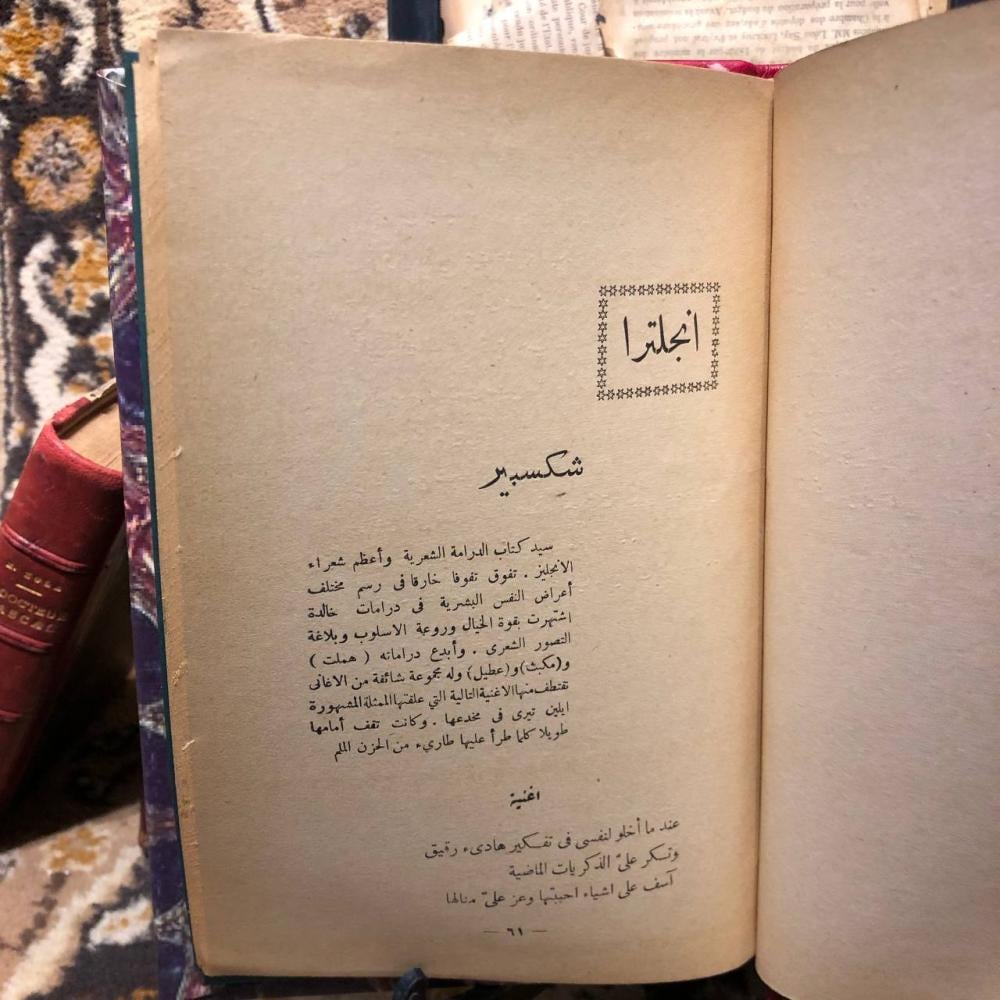 انجلترا
شكسبير
سيد كتاب الدرامة الشعرية وأعظم شعراء
الانجليز . تفوق تفوقا خارقا فى رسم مختلف
أعراض النفس البشرية فى درامات خالدة
اشتهرت بقوة الخيال وروعة الاسلوب وبلاغة
التصور الشعرى . وأبدع دراماته ( هملت )
و(مكبث) و(عطيل) وله مجموعة شائقة من الاغانى
نقتطف منها الاغنية التالية التي علقتها الممثلة المشهورة
ايلين تيرى فى مخدعها . وكانت تقف أمامها
طويلا كلما طرأ عليها طارىء من الحزن الملم
اغنية
عند ما أخلو لنفسى فى تفكير هادىء رقيق
وتسكر علىّ الذكريات الماضية
آسف على اشياء احببتها وعز علىّ منالها
— ٦١ —
DOCTEUR